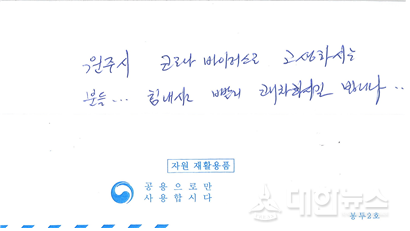 원주시 코로나 바이러스로 고생하시는
분들... 힘내시고 빨리 쾌차하시길 빕니다..
자원 재활용품
공용으로만
사용합시다
대한뉴스
봉투2호